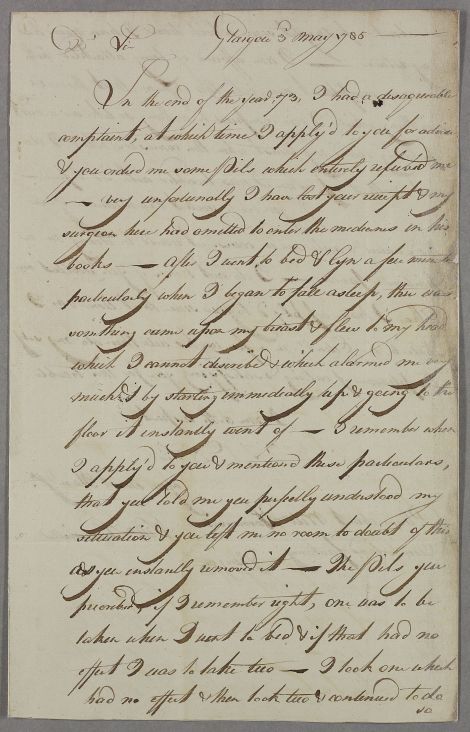 Dr Sir Glasgow 3 May 1785
In the end of the year 1773, I had a disagreeable
complaint, at which time I apply'd to you for advice
& you ordered me some Pils which entirely relieved me
— very unfortunatly I have lost your receipt & my
surgeon here had omitted to enter the medicines in his
books — after I went to bed & lyn a few minutes
particularly when I began to fall asleep, there was
something came upon my breast & flew to my head
which I cannot describe & which alarmed me very
much, & by starting immediatly up & going to the
floor it instantly went of — I remember when
I apply'd to you & mentioned these particulars,
that you told me you perfectly understood my
situation & you left me no room to doubt of this
as you instantly removed it — The Pils you
prescribed if I remember right, one was to be
taken when I went to bed & if that had no
effect I was to take two — I took one which
had no effect & then took two & continued to do
so